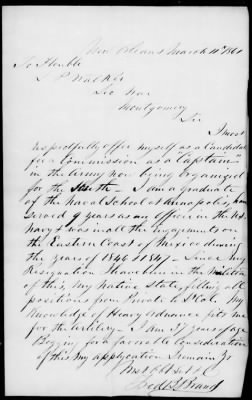 New Orleans March 11th 1861
To Honble
L P Walker
Sec War
Montgomery
Sir
I most
respectfully offer myself as a Candidate
for a Commission as a "Captain"
in the Army now being Organized
for the South - I am a graduate
of the Naval School at Annapolis, have
served 9 years as an officer in the US.
Navy & was in all the engagements on
the Eastern Coast of Mexico during
the years of 1846 & 1847 - Since my
Resignation I have been in the Militia
of this, my Native State, filling all
positions from Private to Col. My
Knowledge of Heavy Ordnance fits me
for the Artillery - I am 37 years of age
Begging for a favorable Consideration
of this my application I remain Yr
Most Obt Svt
Fredk B Brand